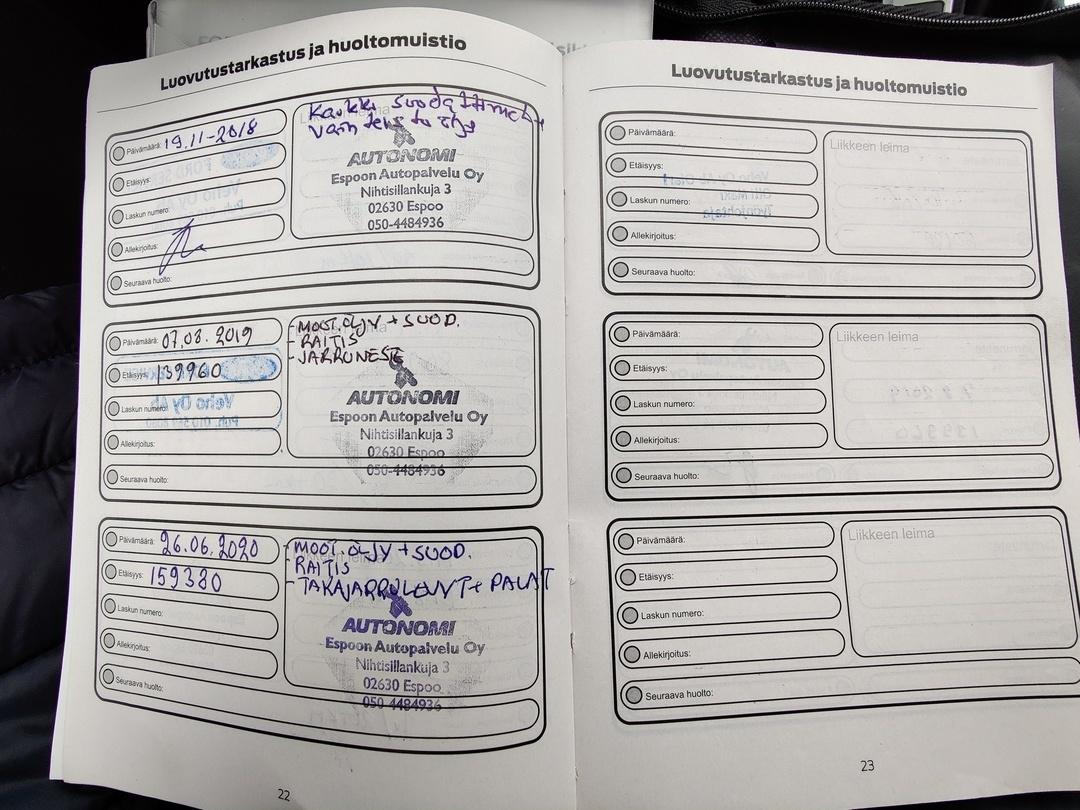 Luovutustarkastus ja huoltomuistio
Päivämäärä: 19.11-2018
Etäisyys:
Laskun numero:
Allekirjoitus:
Seuraava huolto:
Kaikki
AUTONOMI
Espoon Autopalvelu Oy
Nihtisillankuja 3
02630 Espoo
050-4484936
Päivämäärä: 07.08.2019
Etäisyys: 139960
Laskun numero:
Allekirjoitus:
Seuraava huolto:
-MOOT.ÖLJY + SUOD.
-RAITIS
-JARRUNESTE
AUTONOMI
Espoon Autopalvelu Oy
Nihtisillankuja 3
02630 Espoo
050-4484936
Päivämäärä: 26.06.2020
Etäisyys: 159380
Laskun numero:
Allekirjoitus:
Seuraava huolto:
-MOOT.ÖLJY + SUOD.
-RAITIS
-TAKAJARRULEVYT + PALAT
AUTONOMI
Espoon Autopalvelu Oy
Nihtisillankuja 3
02630 Espoo
050-4484936
22
Luovutustarkastus ja huoltomuistio
Päivämäärä:
Etäisyys:
Laskun numero:
Allekirjoitus:
Seuraava huolto:
Liikkeen leima
Päivämäärä:
Etäisyys:
Laskun numero:
Allekirjoitus:
Seuraava huolto:
Liikkeen leima
Päivämäärä:
Etäisyys:
Laskun numero:
Allekirjoitus:
Seuraava huolto:
Liikkeen leima
23